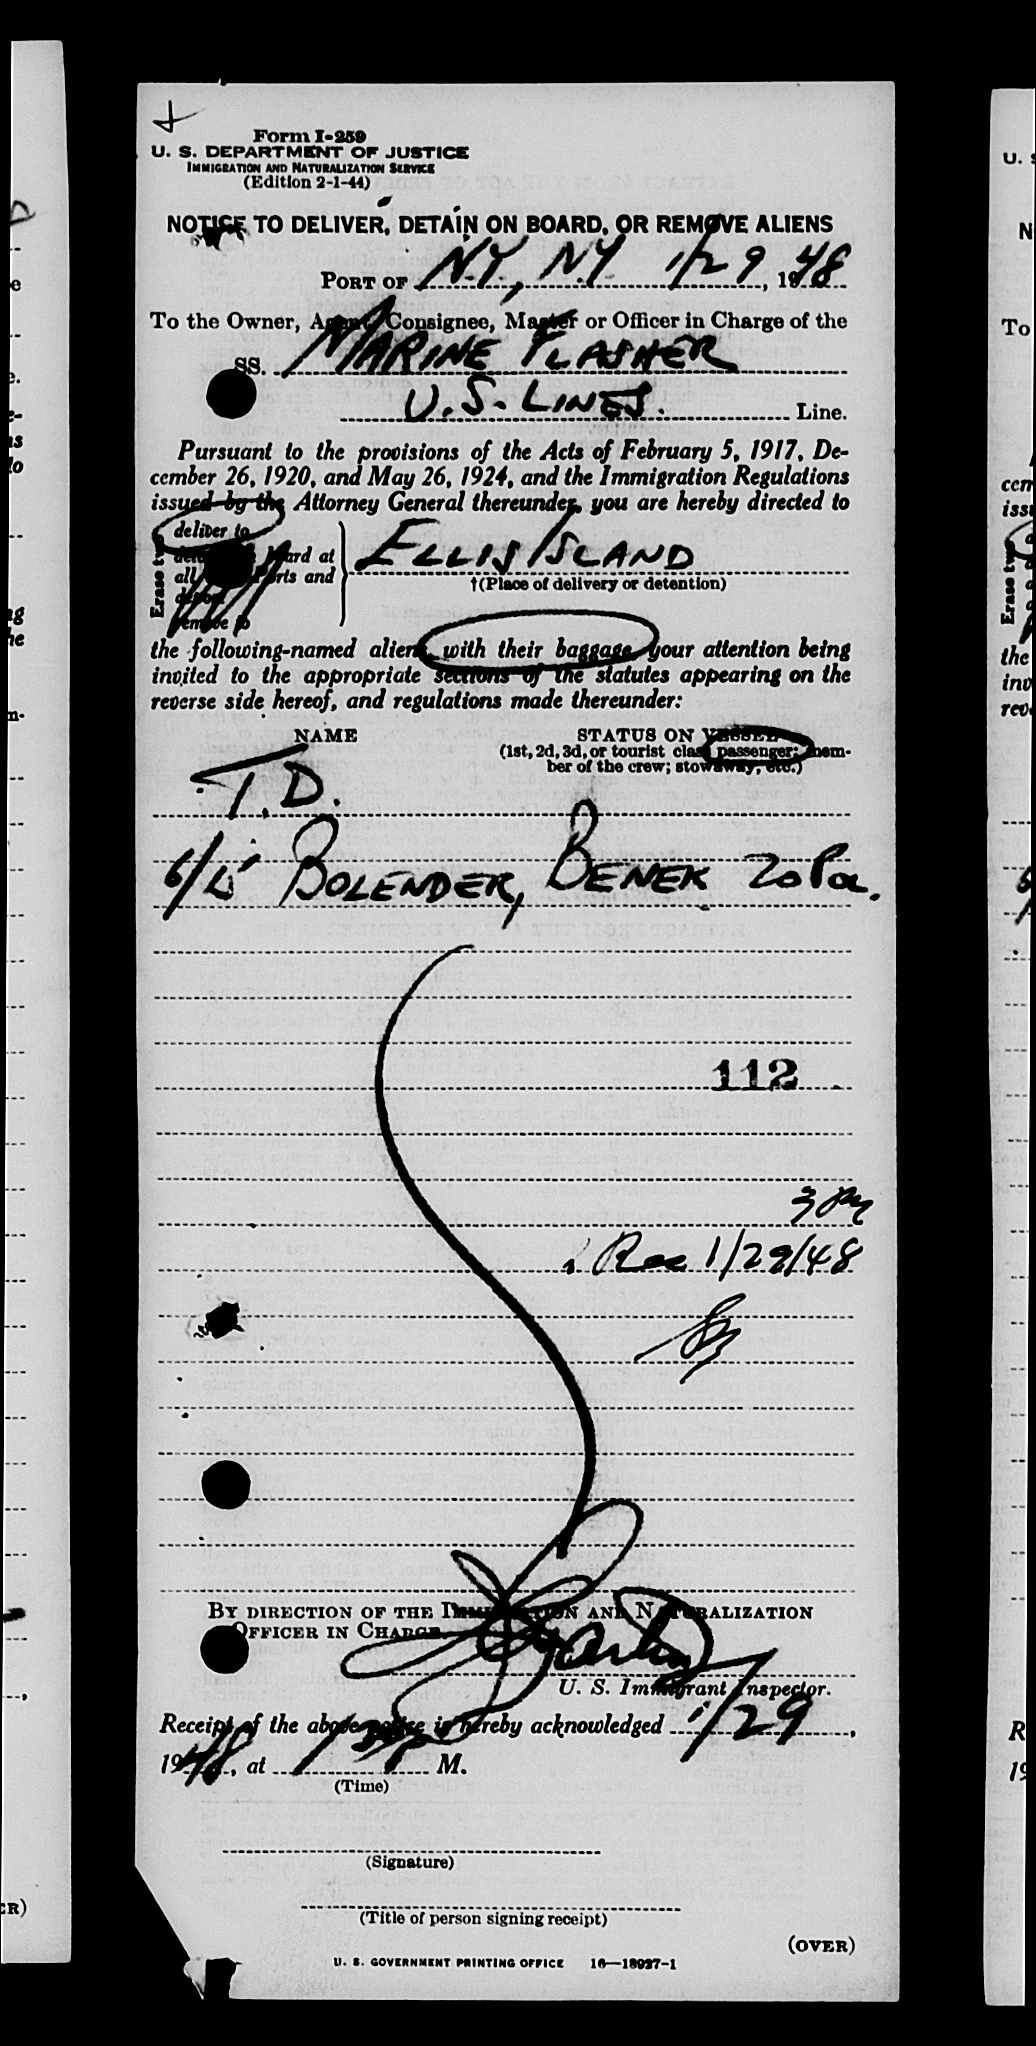 Form I-259
U. S. DEPARTMENT OF JUSTICE
IMMIGRATION AND NATURALIZATION SERVICE
(Edition 2-1-44)
NOTICE TO DELIVER, DETAIN ON BOARD, OR REMOVE ALIENS
PORT OF N.Y., NY 1/29, 1948
To the Owner, Agent, Consignee, Master or Officer in Charge of the
SS. MARINE FLASHER
U.S. LINES. Line.
Pursuant to the provisions of the Acts of February 5, 1917, De-
cember 26, 1920, and May 26, 1924, and the Immigration Regulations
issued by the Attorney General thereunder, you are hereby directed to
Erase two
deliver to
board at
all ports and
remove to
ELLIS ISLAND
†(Place of delivery or detention)
the following-named aliens with their baggage, your attention being
invited to the appropriate sections of the statutes appearing on the
reverse side hereof, and regulations made thereunder:
NAME
STATUS ON VESSEL
(1st, 2d, 3d, or tourist class passenger; mem-
ber of the crew; stowaway, etc.)
T.D.
6/4 BOLENDER, BENEK 20 Pol.
112
3 PM
Rec 1/29/48
BY DIRECTION OF THE IMMIGRATION AND NATURALIZATION
OFFICER IN CHARGE
U. S. Immigrant Inspector.
Receipt of the above notice is hereby acknowledged 1/29,
1948, at M.
(Time)
(Signature)
(Title of person signing receipt)
(OVER)
U. S. GOVERNMENT PRINTING OFFICE 16—18927-1